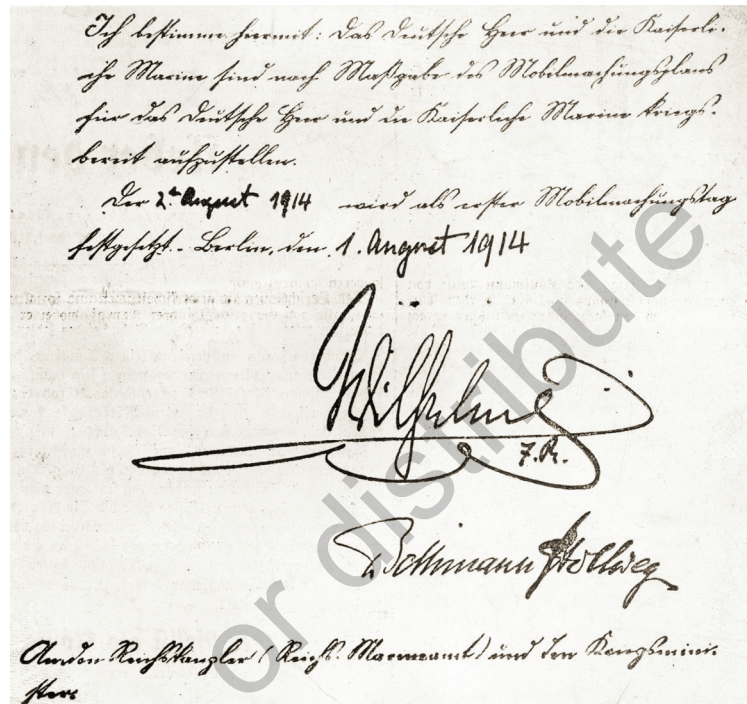 Ich bestimme hiermit: Das Deutsche Heer und die Kaiserli-
che Marine sind nach Maßgabe des Mobilmachungsplans
für das Deutsche Heer und die Kaiserliche Marine kriegs-
bereit aufzustellen.
Der 2te August 1914 wird als erster Mobilmachungstag
festgesetzt. Berlin, den 1. August 1914
Wilhelm
I. R.
v Bethmann Hollweg
An den Reichskanzler (Reichs-Marineamt) und den Kriegsmini-
ster.
or distribute